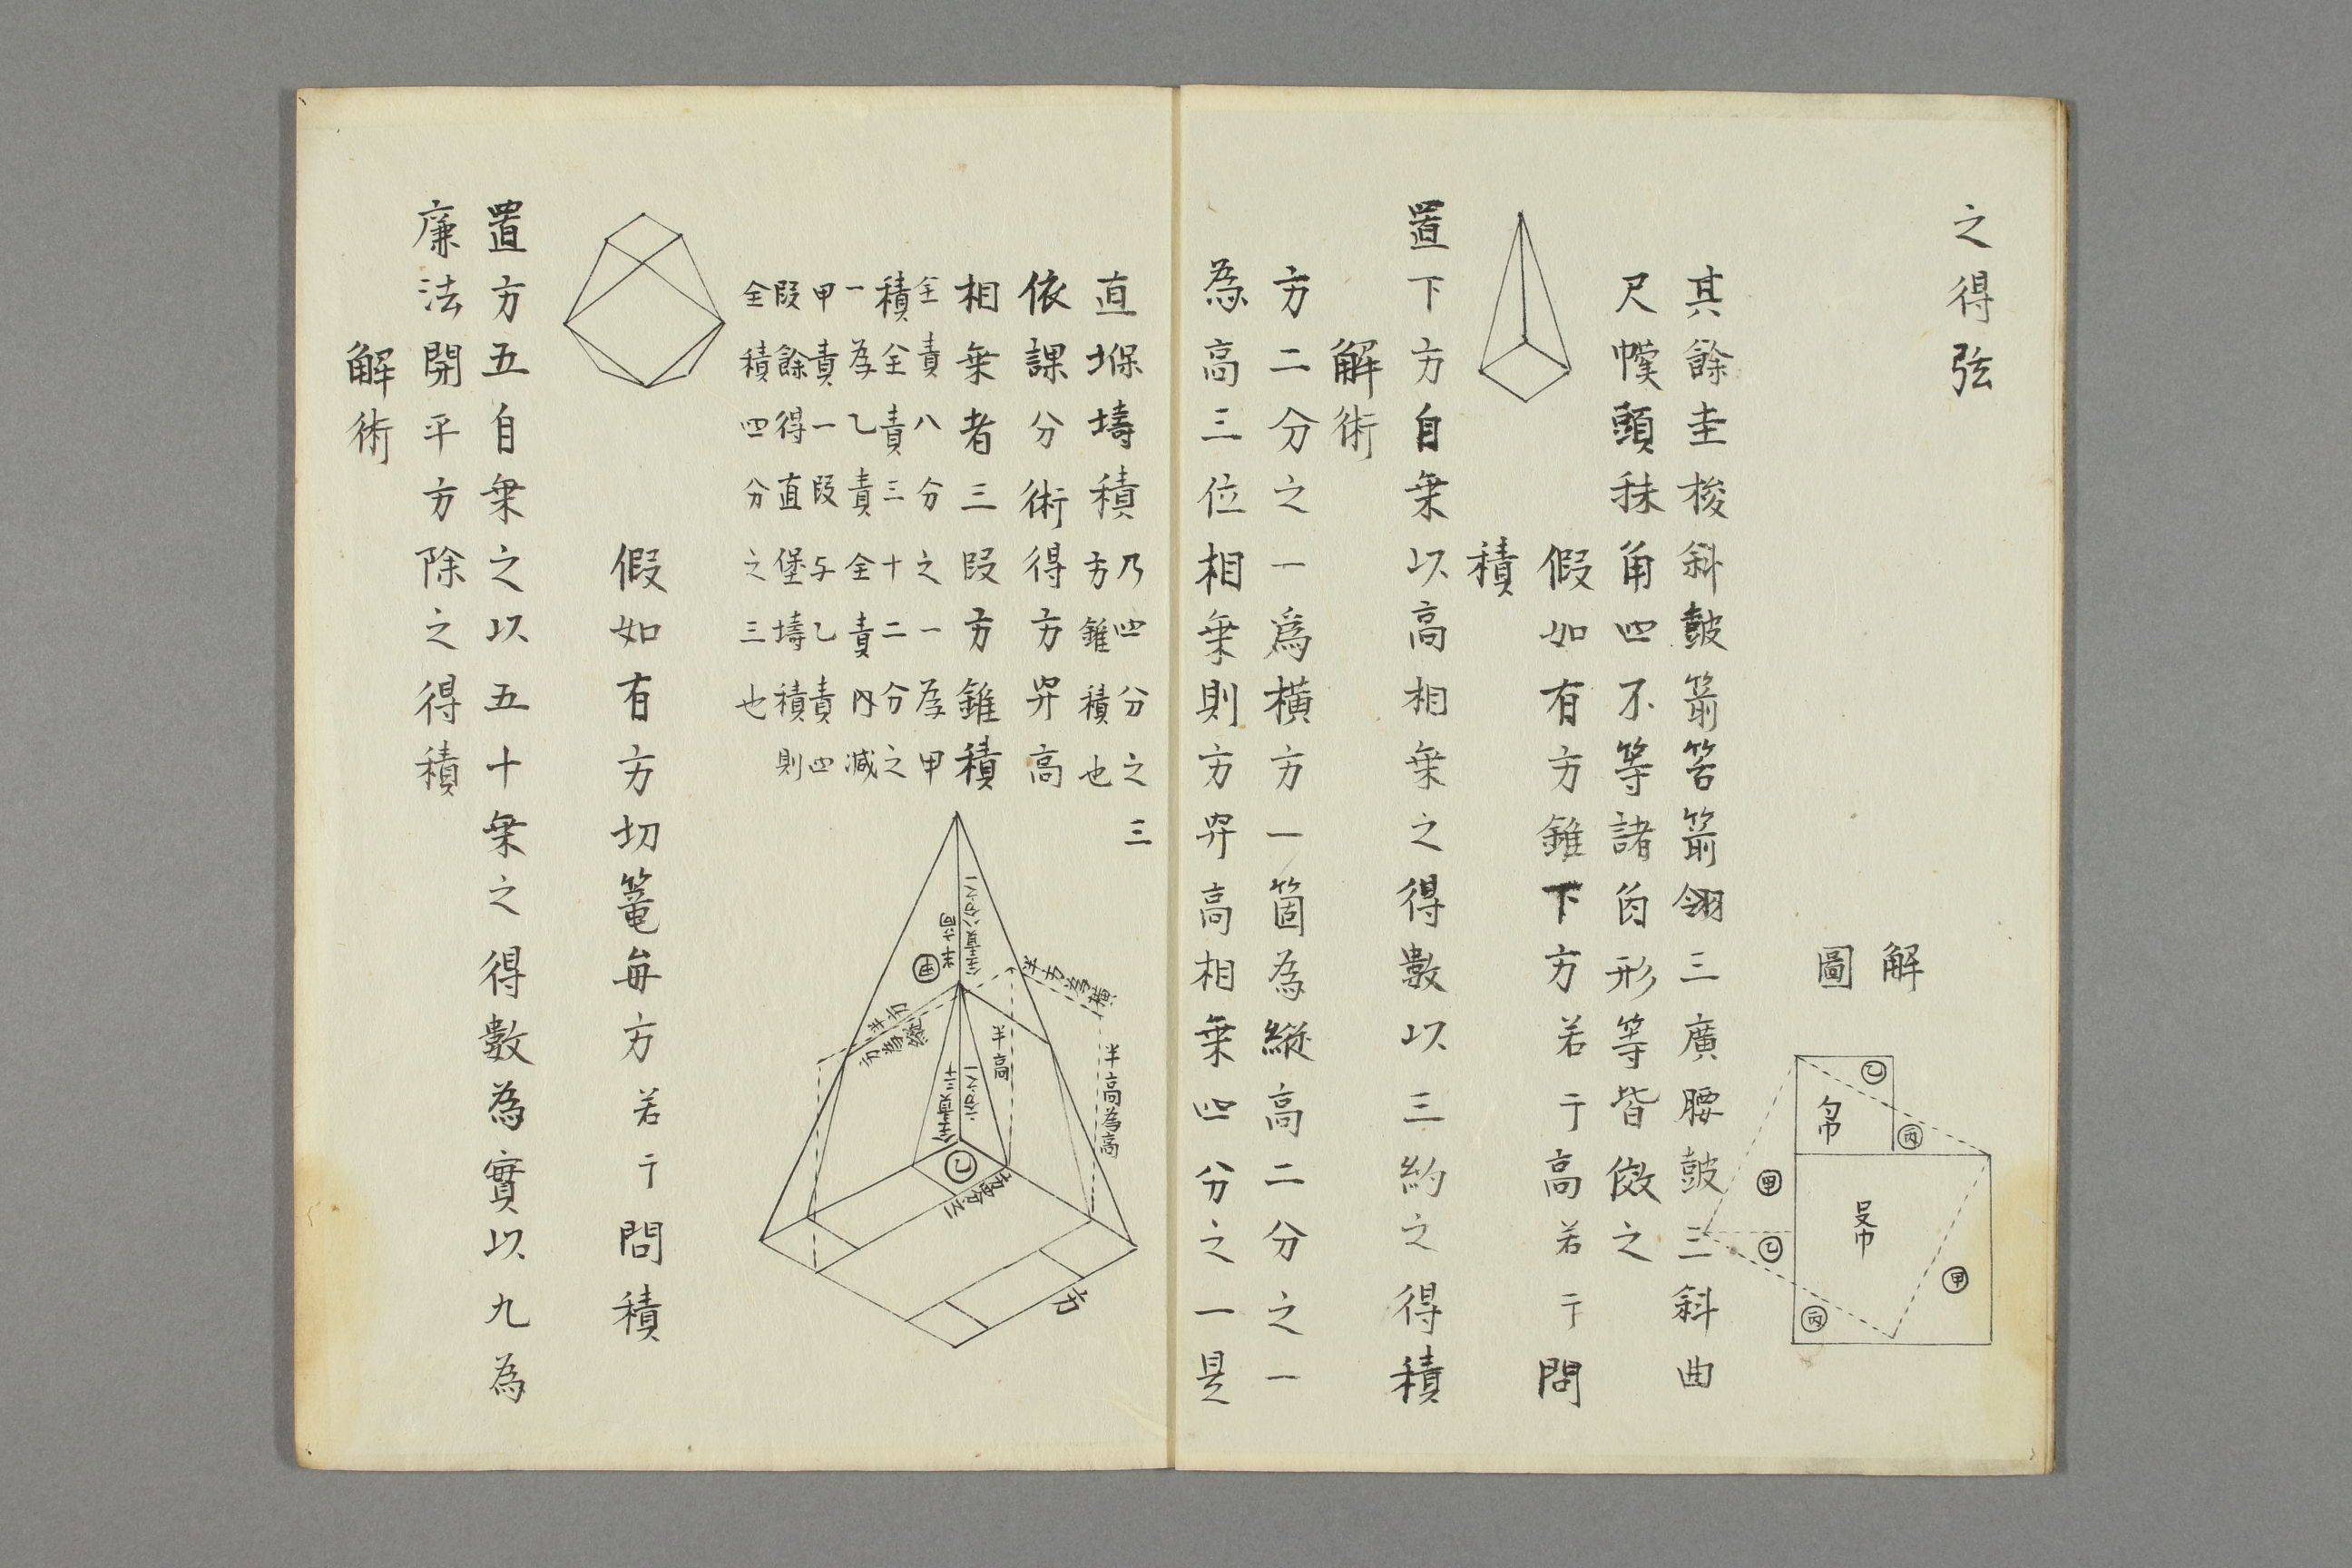 之得弦
解
圖
乙
丙
甲
乙
甲
丙
其餘圭梭斜皷箭筈箭翎三廣腰皷三斜曲
尺幞頭秣角四不等諸形等皆倣之
假如有方錐下方若干高若干問
積
置下方自乗以高相乗之得數以三約之得積
解術
方二分之一爲横方一箇為縱高二分之一
為高三位相乗則方畀高相乗四分之一是
直堢壔積
乃四分之三
方錐積也
依課分術得方畀高
相乗者三叚方錐積
全責八分之一為甲
積全責三十二分之
一為乙責全責内减
甲責一叚与乙責四
叚餘得直堡壔積則
全積四分之三也
半方為横
半高為高
半高
全責八分之一
甲
半高
全責三十二分之一
乙
方
假如有方切篭毎方若干問積
置方五自乗之以五十乗之得數為實以九為
廉法開平方除之得積
解術